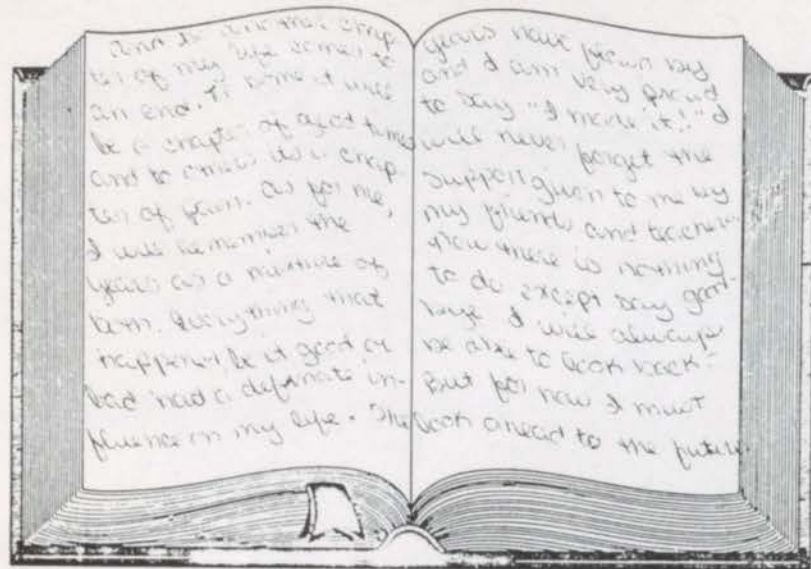 And so chap
ter of my life comes to
an end. To some it will
be a chapter of good times
and to others it's a chap-
ter of pain. As for me,
I will remember the
years as a mixture of
both. Everything that
happened, be it good or
bad had a definate in-
fluence on my life. The
years have flown by
and I am very proud
to say "I made it!" I
will never forget the
support given to me by
my friends and teachers
Now there is nothing
to do except say good-
bye I will always
be able to look back-
But for now I must
look ahead to the future.